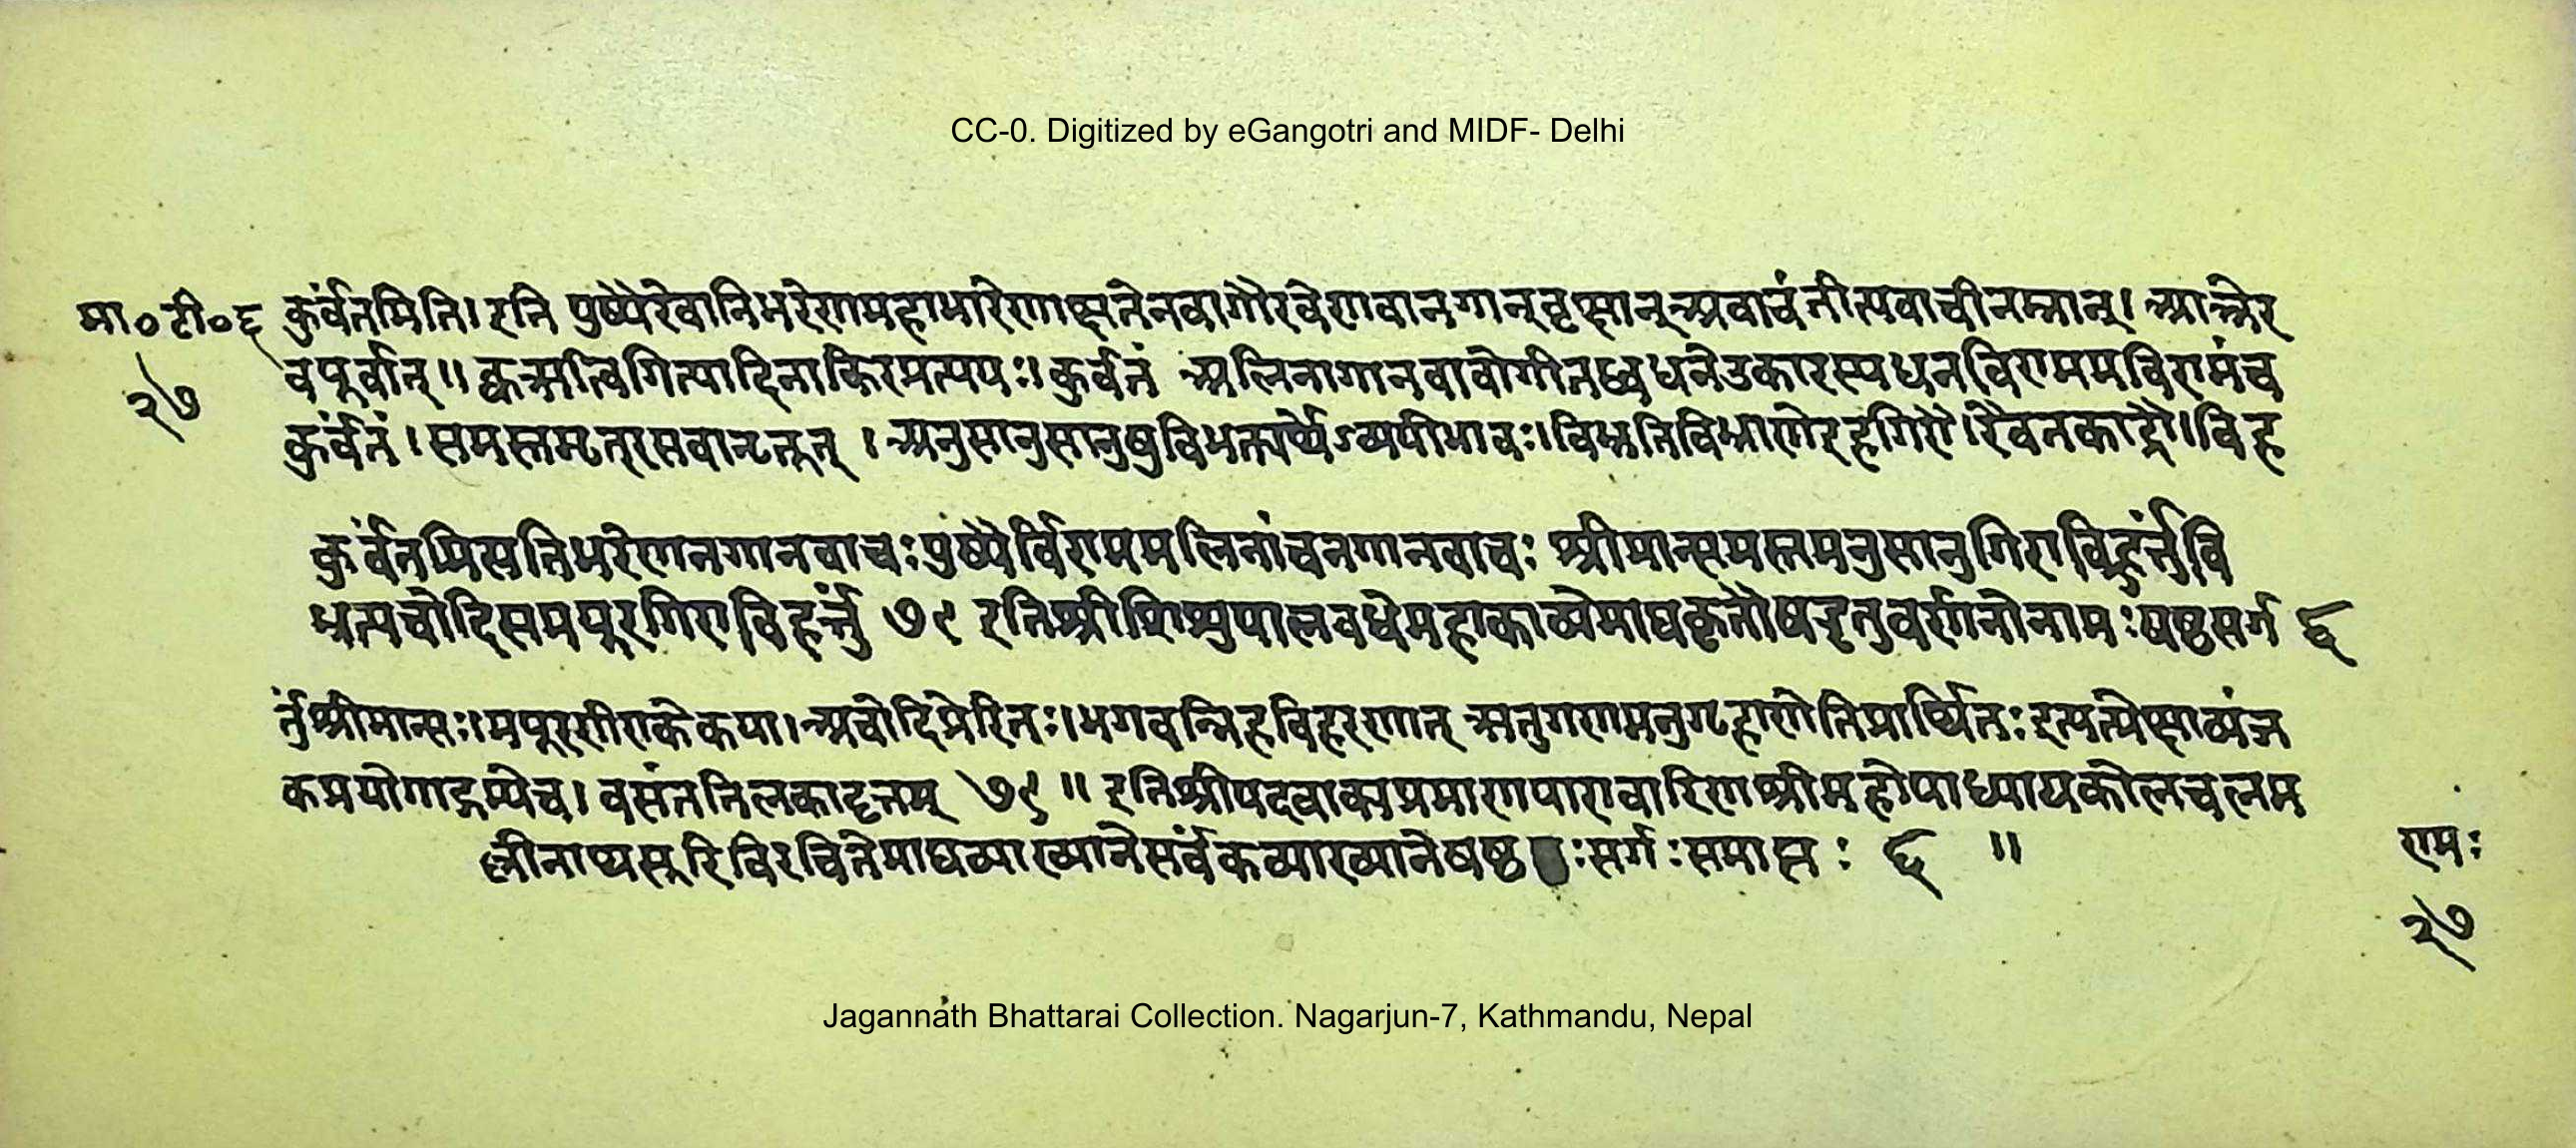 CC-0. Digitized by eGangotri and MIDF- Delhi
मा०टी०६
२७
कुर्वंतमिति। इति पुष्पैरेवातिभरेणमहाभारेणात्प्तनेनवागौरवेणवानगान् वृक्षान् अवाचंतीत्यवाचीनम्नान्। आञ्चेर
वपूर्वात्॥ कृत्रमृत्विगित्यादिनाक्विरप्रत्ययः॥ कुर्वतं अलिनागानवावोगीतध्वधनेउकारस्यधनविराममविरामंच
कुर्वंतं। समस्तमृत्रासवान्टत्तून्। अनुसानुसानुषुविभक्त्यर्थेऽव्ययीभावः॥ विभ्रतिविभ्राणेइहगिरौ। रैवतकाद्रौ। विह
कुर्वंतमिसतिभरेणनगानवाचः पुष्पैर्विराममलिनांचनगानवाचः श्रीमान्समस्तमनुसानुगिराविहर्तुंवि
भ्रत्यचोदिसमयूरगिराविहर्त्तुं ७९ इतिश्रीशिशुपालवधेमहाकाव्येमाघकृतौषडृतुवर्णनोनामःषष्ठसर्ग ६
र्तुंश्रीमान्सः। मयूरगीराकेकया। अचोदिप्रेरितः। भगवन्निहविहरणात् ऋतुगणमनुगृहाणेतिप्रार्थितः इत्यत्प्रेक्षाव्यंज
कप्रयोगाद्गम्येच। वसंततिलकावृत्तम् ७९॥ इतिश्रीपदवाक्यप्रमाणपारावारिणश्रीमहोपाध्यायकोलचलम
ल्लीनाथसूरिविरचितेमाघव्याख्यानेसर्वंकव्याख्यानेषष्ठःसर्गःसमाप्तः ६ ॥
रामः
२७
Jagannath Bhattarai Collection. Nagarjun-7, Kathmandu, Nepal